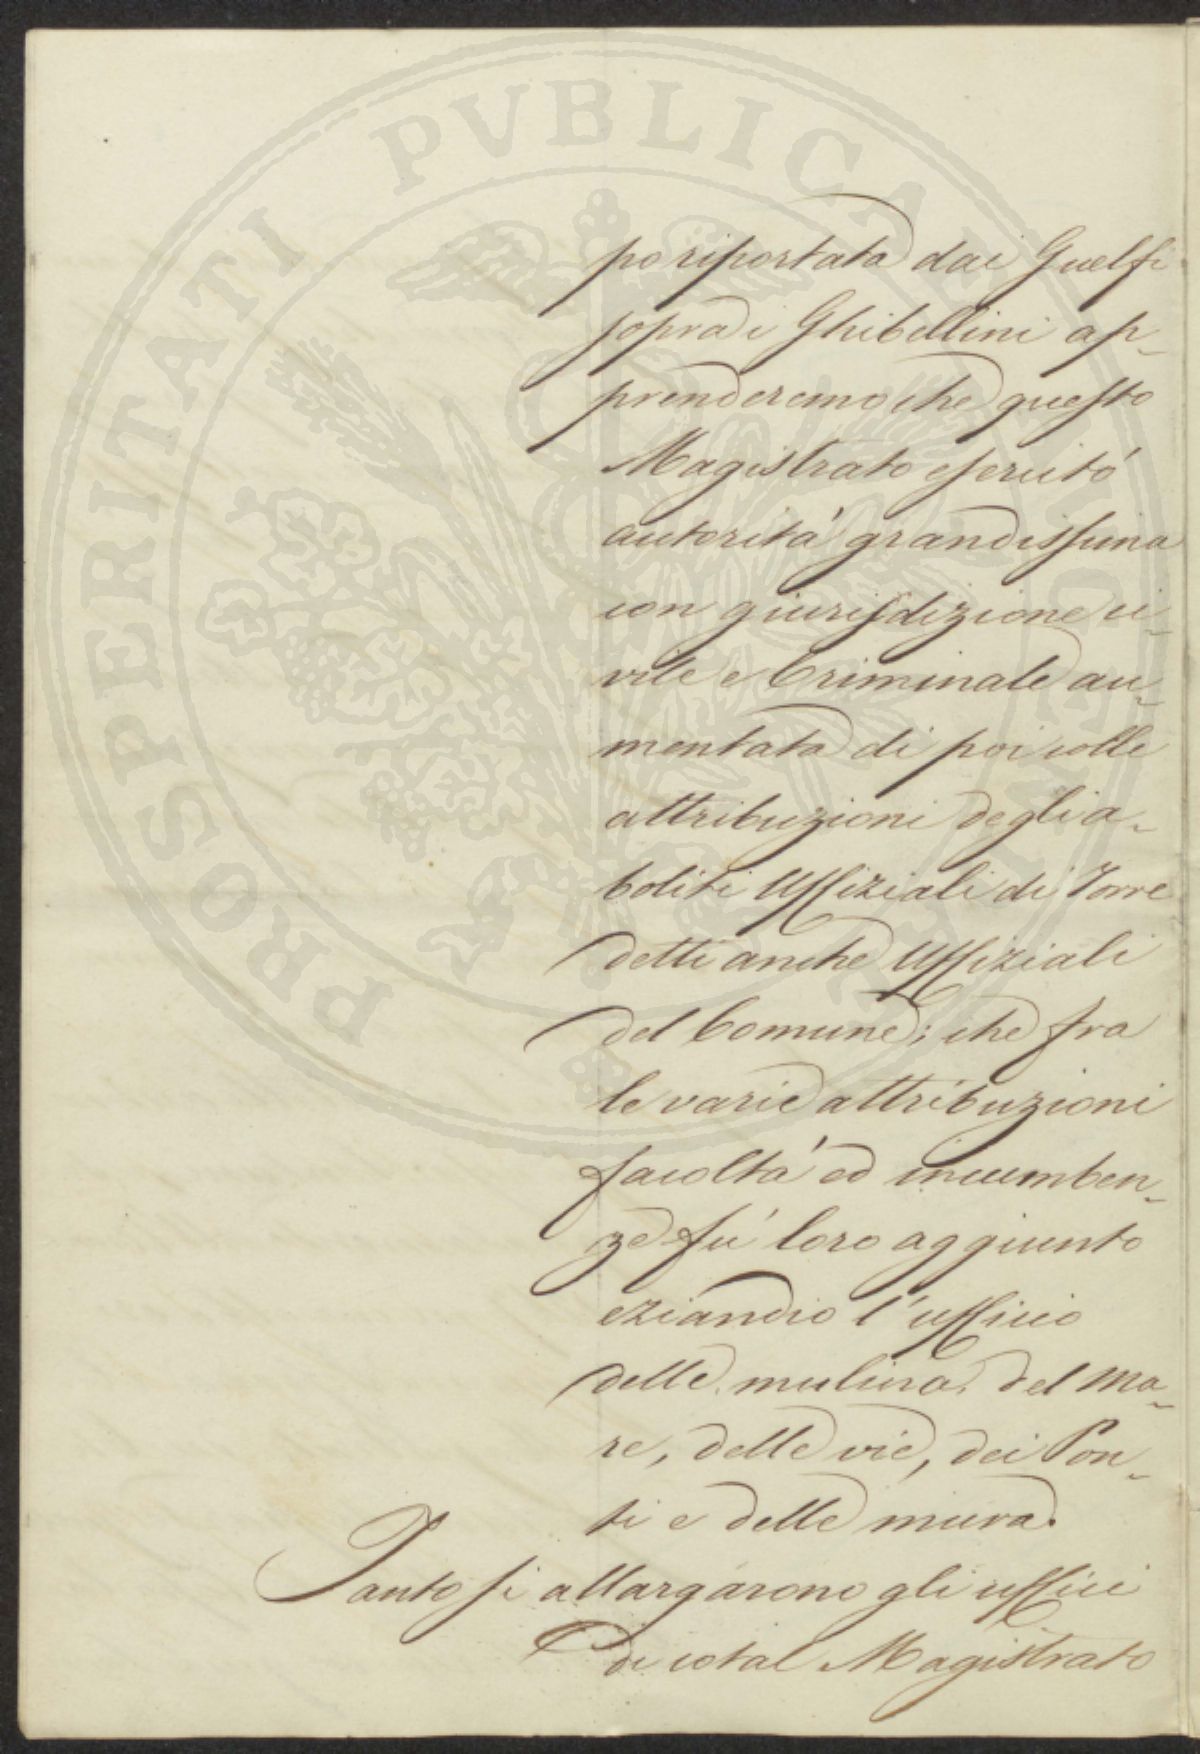 PROSPERITATI PVBLICAE
po riportata dai Guelfi
sopra i Ghibellini ap-
prenderemo che questo
Magistrato esercitó
autoritá grandissima
con giurisdizione ci-
vile e Criminale au-
mentata di poi colle
attribuzioni degli a-
boliti Uffiziali di Torre
detti anche Uffiziali
del Comune; che fra
le varie attribuzioni
facoltá ed incumben-
ze fú loro aggiunto
eziandio l'ufficio
delle mulina, del Ma-
re, delle vie, dei Pon-
ti e delle mura.
Tanto si allargárono gli ufficî
di cotal Magistrato